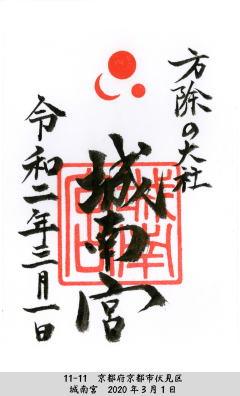 方除の大社
城南宮
令和二年三月一日
11-11　京都府京都市伏見区
城南宮　2020年3月1日